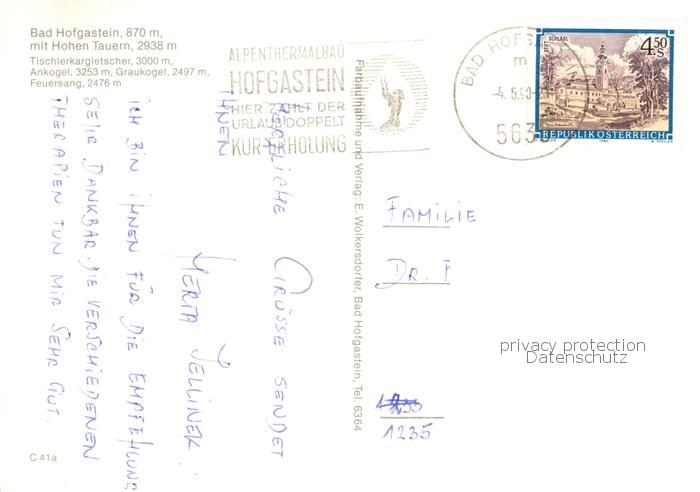 Bad Hofgastein, 870 m,
mit Hohen Tauern, 2938 m
Tischlerkargletscher, 3000 m,
Ankogel, 3253 m, Graukogel, 2497 m,
Feuersang, 2476 m
ALPENTHERMALBAD
HOFGASTEIN
HIER ZÄHLT DER
URLAUB DOPPELT
KUR-ERHOLUNG
BAD HOFGAS
m
-4.5.90-
563
STIFT SCHLÄGL
4.50
S
REPUBLIK ÖSTERREICH
1984
A. PFEILER
IHNEN
HERZLICHE GRÜSSE SENDET
HERTA JELLINEK.
ICH BIN IHNEN FÜR DIE EMPFEHLUNG
SEHR DANKBAR. DIE VERSCHIEDENEN
THERAPIEN TUN MIR SEHR GUT.
Farbaufnahme und Verlag: E. Wolkersdorfer, Bad Hofgastein, Tel. 6364
FAMILIE
DR. P
privacy protection
Datenschutz
1235
C 41a